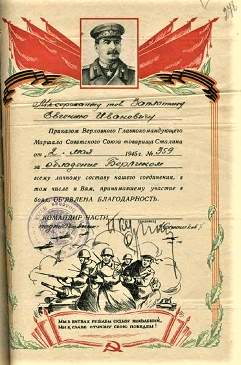 Мл. сержанту тов.
Евгению Ивановичу
Приказом Верховного Главнокомандующего
Маршала Советского Союза товарища Сталина
от 2 мая 1945 г. № 359
за овладение Берлином
всему личному составу нашего соединения, в
том числе и Вам, принимавшему участие в
боях, ОБ'ЯВЛЕНА БЛАГОДАРНОСТЬ.
КОМАНДИР ЧАСТИ
Мы в битвах решаем судьбу поколений,
Мы к славе отчизну свою поведем!